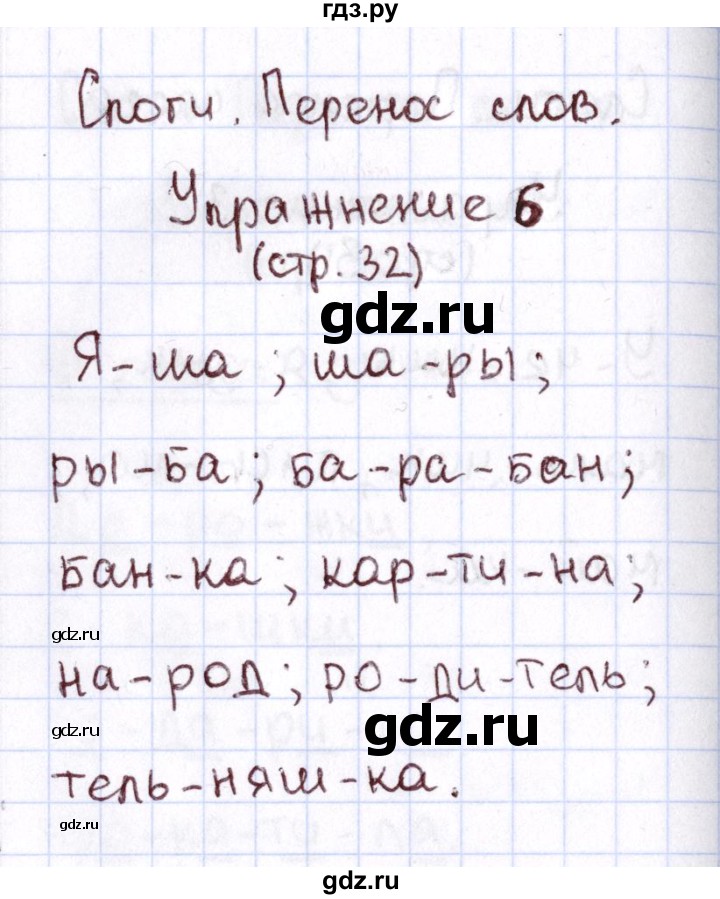 гдз.ру
Слоги. Перенос слов.
Упражнение 6
(стр. 32)
gdz.ru
Я-ша; ша-ры;
ры-ба; ба-ра-бан;
бан-ка; кар-ти-на;
gdz.ru
на-род; ро-ди-тель;
gdz.ru
gdz.ru
тель-няш-ка.
gdz.ru
gdz.ru